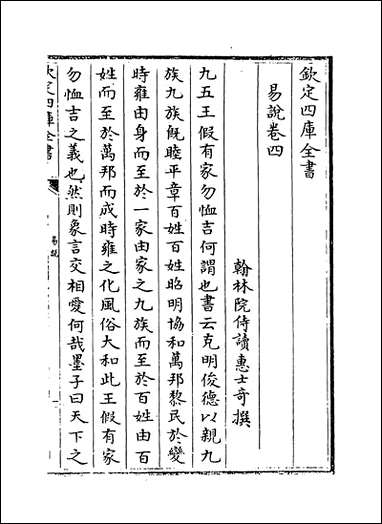 欽定四庫全書
易說卷四
翰林院侍讀惠士奇撰
九五王假有家勿恤吉何謂也書云克明俊德以親九
族九族旣睦平章百姓百姓昭明協和萬邦黎民於變
時雍由身而至於一家由家之九族而至於百姓由百
姓而至於萬邦而成時雍之化風俗大和此王假有家
勿恤吉之義也然則象言交相愛何哉墨子曰天下之
欽定四庫全書
易說